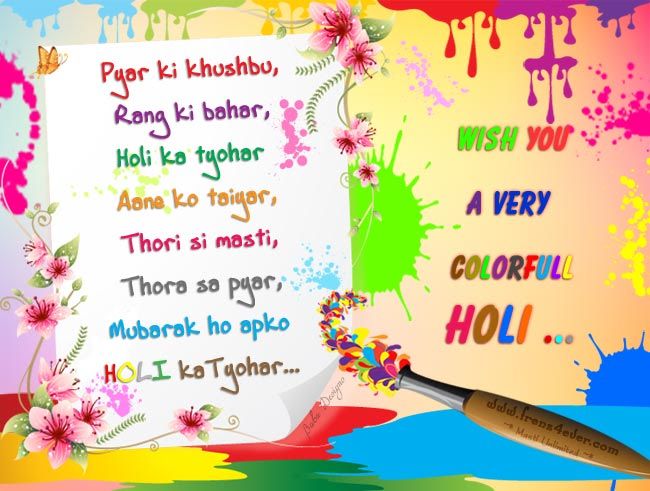 Pyar ki khushbu,
Rang ki bahar,
Holi ka tyohar
Aane ko taiyar,
Thori si masti,
Thora sa pyar,
Mubarak ho apko
HOLI ka Tyohar...
WISH YOU
A VERY
COLORFULL
HOLI ...
www.frens4ever.com
Masti Unlimited